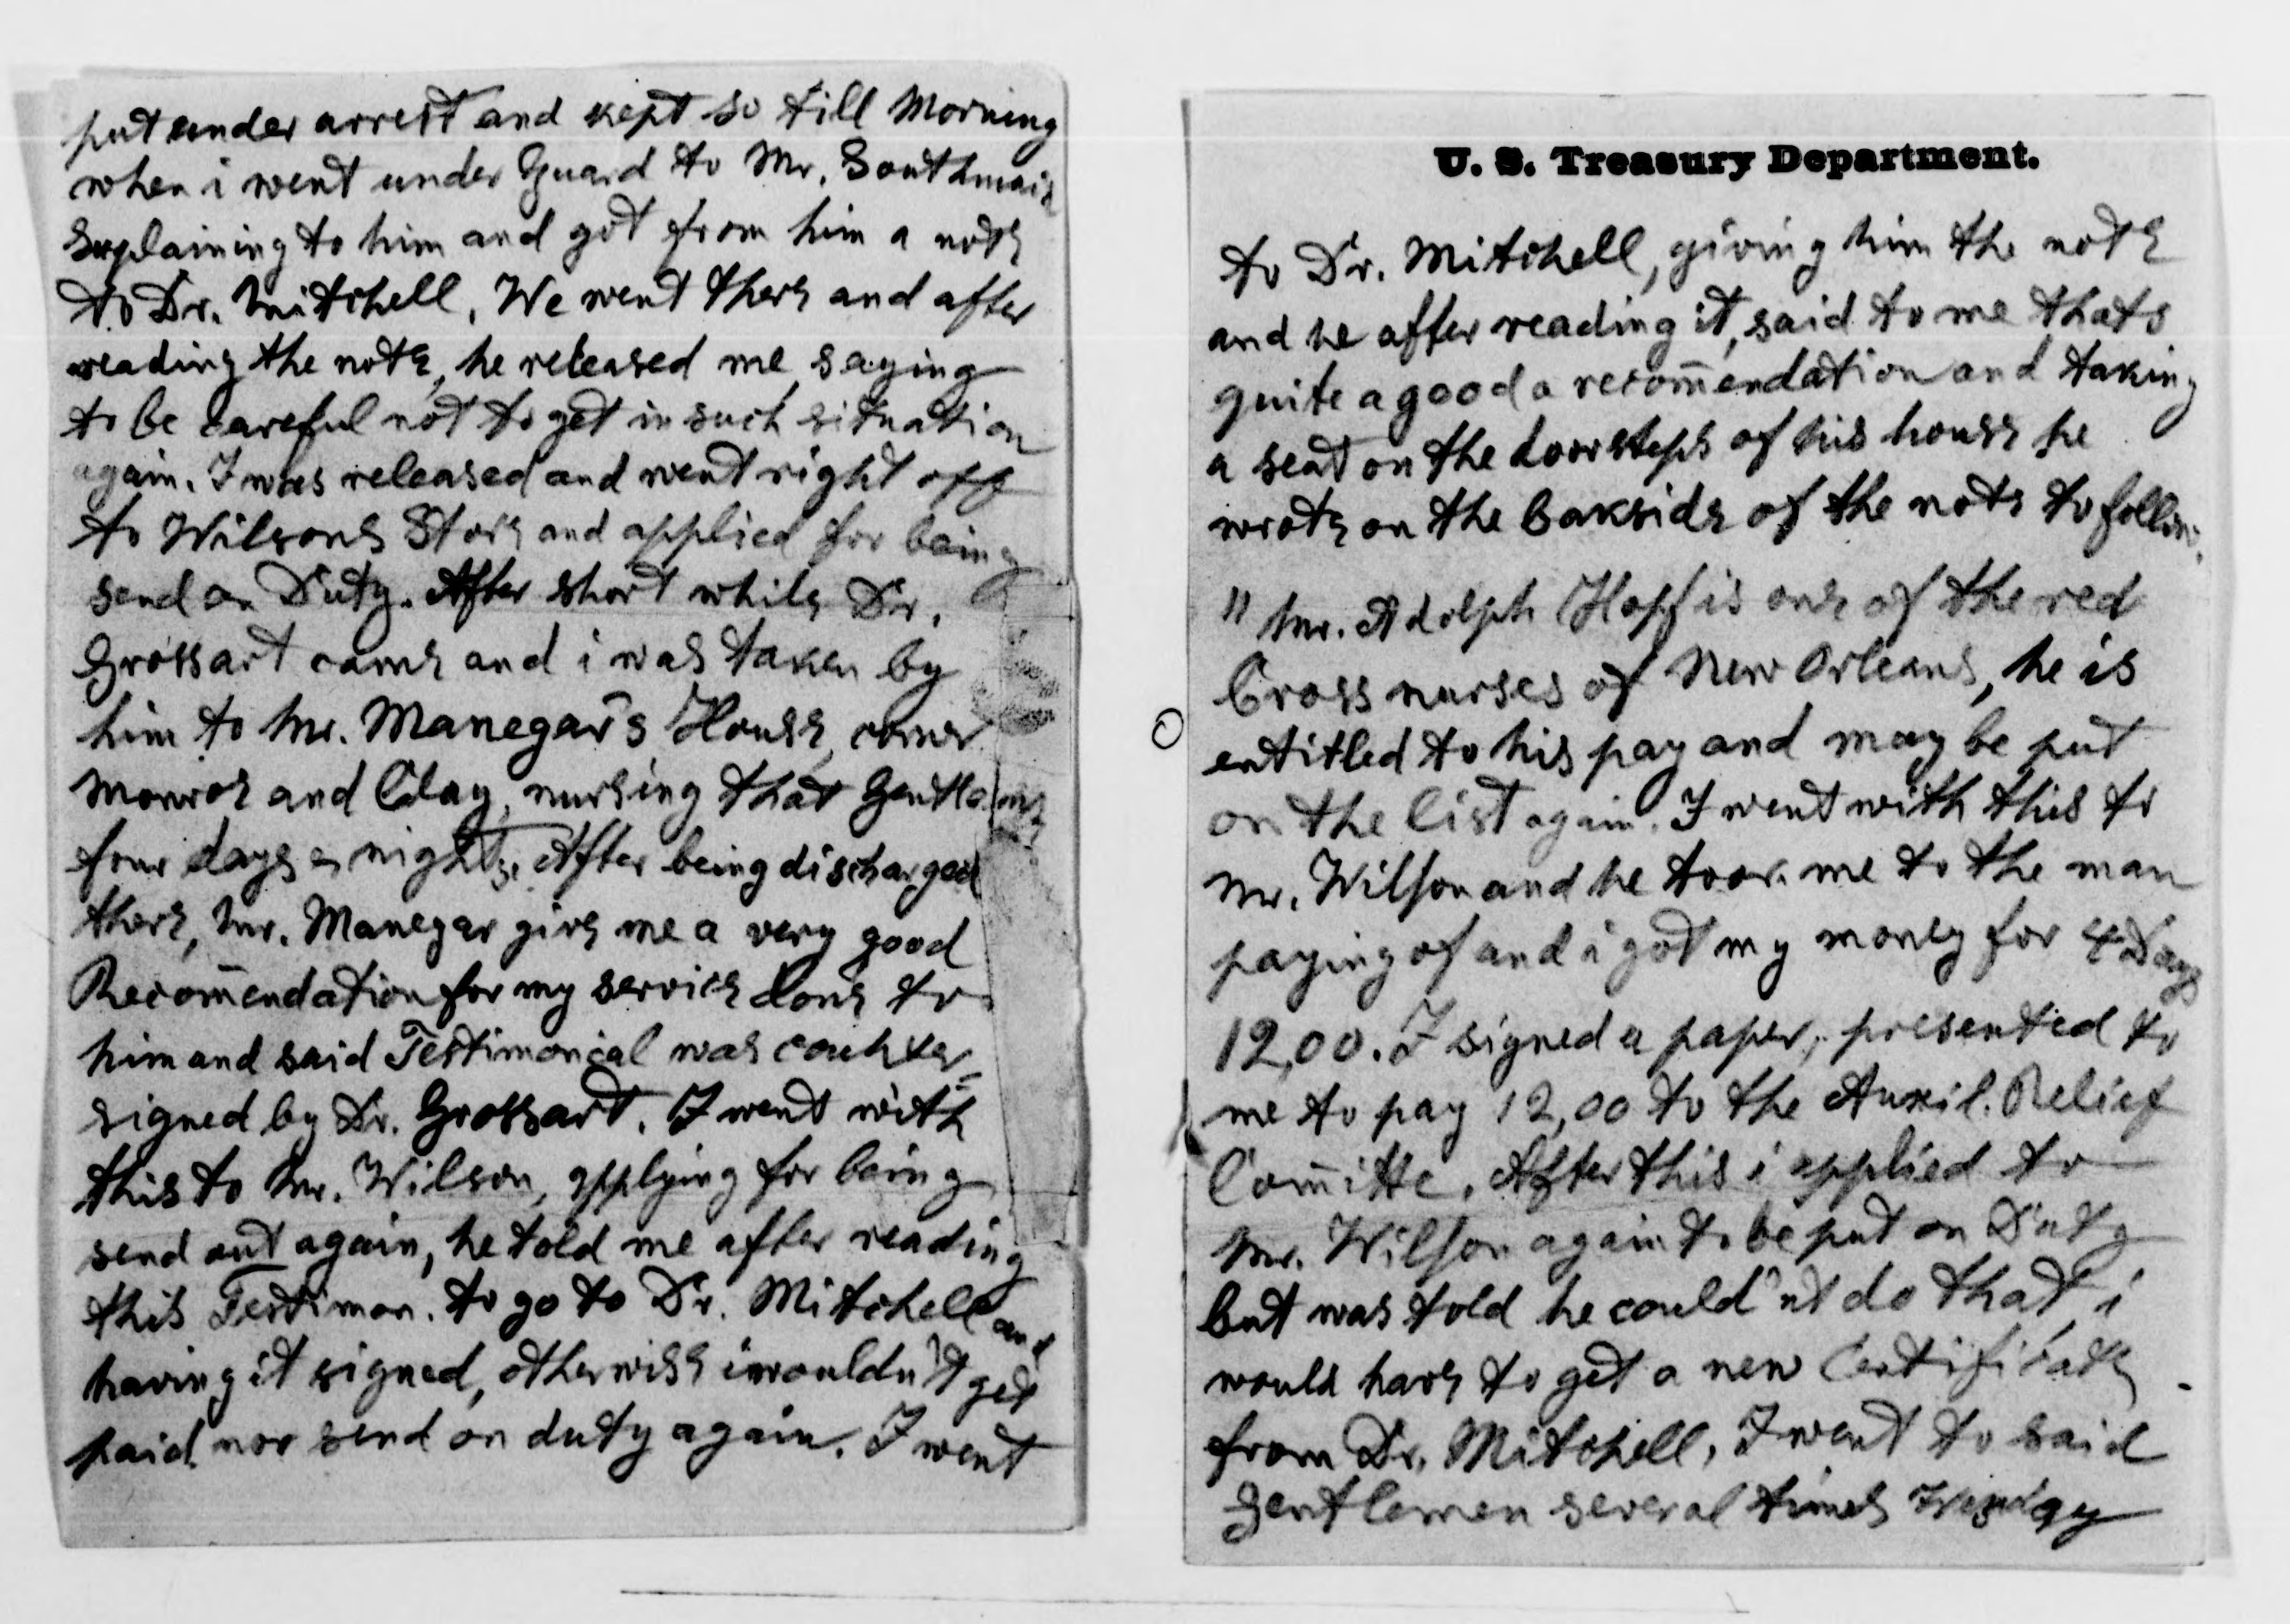 put under arrest and kept so till Morning
when i went under Guard to Mr. Southmaid
Explaining to him and got from him a note
to Dr. Mitchell, We went there and after
reading the note, he released me, saying
to be careful not to get in such situation
again. I was released and went right off
to Wilsons Store and applied for being
send on Duty. After short while Dr.
Grossart came and i was taken by
him to Mr. Manegar's House, corner
Monroe and Clay, nursing that Gentlem
four days & nights. After being discharged
there, Mr. Manegar give me a very good
Recom̄endation for my service done to
him and said Testimonial was counter=
signed by Dr. Grossart. I went with
this to Mr. Wilson, applying for being
send out again, he told me after reading
this Testimon. to go to Dr. Mitchell and
having it signed, otherwise i wouldn't get
paid nor send on duty again. I went
U. S. Treasury Department.
to Dr. Mitchell, giving him the note
and he after reading it, said to me thats
quite a good a recom̄endation and taking
a seat on the doorsteps of his house he
wrote on the bakside of the note to follow:
" Mr. Adolph Hopf is one of the red
Cross nurses of New Orleans, he is
entitled to his pay and may be put
on the list again. I went with this to
Mr. Wilson and he took me to the man
paying of and i got my money for 4 Days
12,00. I signed a paper, presented to
me to pay 12,00 to the Auxil. Relief
Com̄itte. After this i applied to
Mr. Wilson again to be put on Duty
but was told he could'nt do that, i
would have to get a new Certificate
from Dr. Mitchell, I went to said
Gentlemen several times